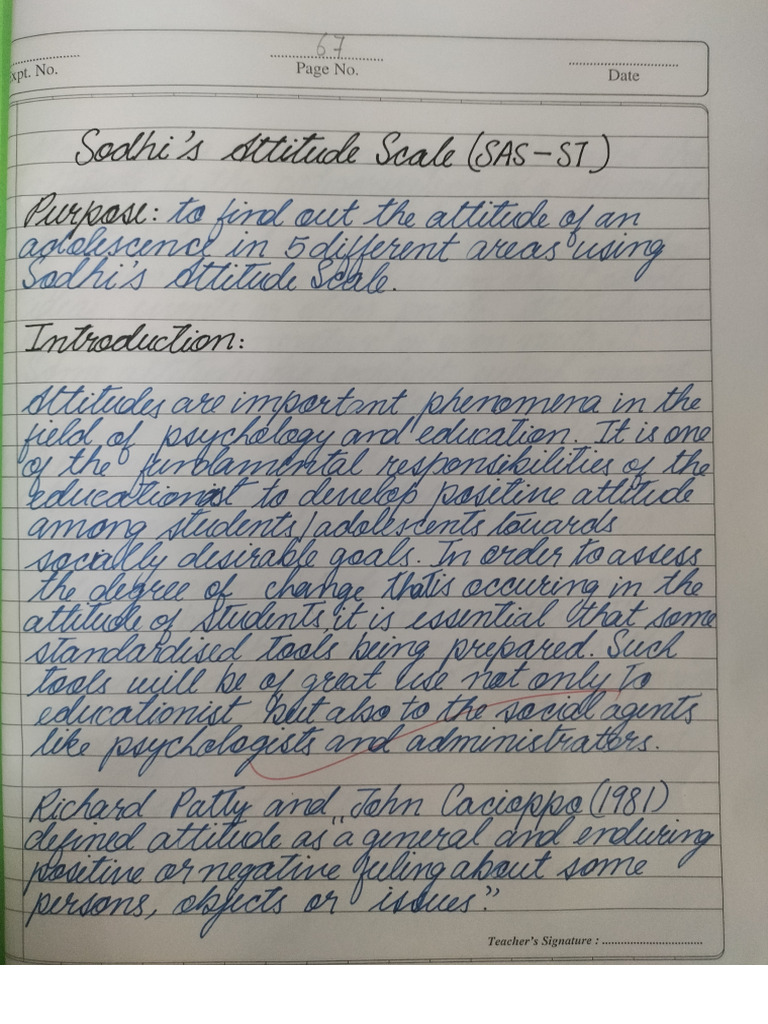 67
Expt. No.
Page No.
Date
Sodhi's Attitude Scale (SAS-ST)
Purpose: to find out the attitude of an
adolescence in 5 different areas using
Sodhi's Attitude Scale.
Introduction:
Attitudes are important phenomena in the
field of psychology and education. It is one
of the fundamental responsibilities of the
educationist to develop positive attitude
among students/adolescents towards
socially desirable goals. In order to assess
the degree of change that is occuring in the
attitude of students, it is essential that some
standardised tools being prepared. Such
tools will be of great use not only to
educationist but also to the social agents
like psychologists and administrators.
Richard Patty and John Cacioppo (1981)
defined attitude as "a general and enduring
positive or negative feeling about some
persons, objects or issues"
Teacher's Signature :